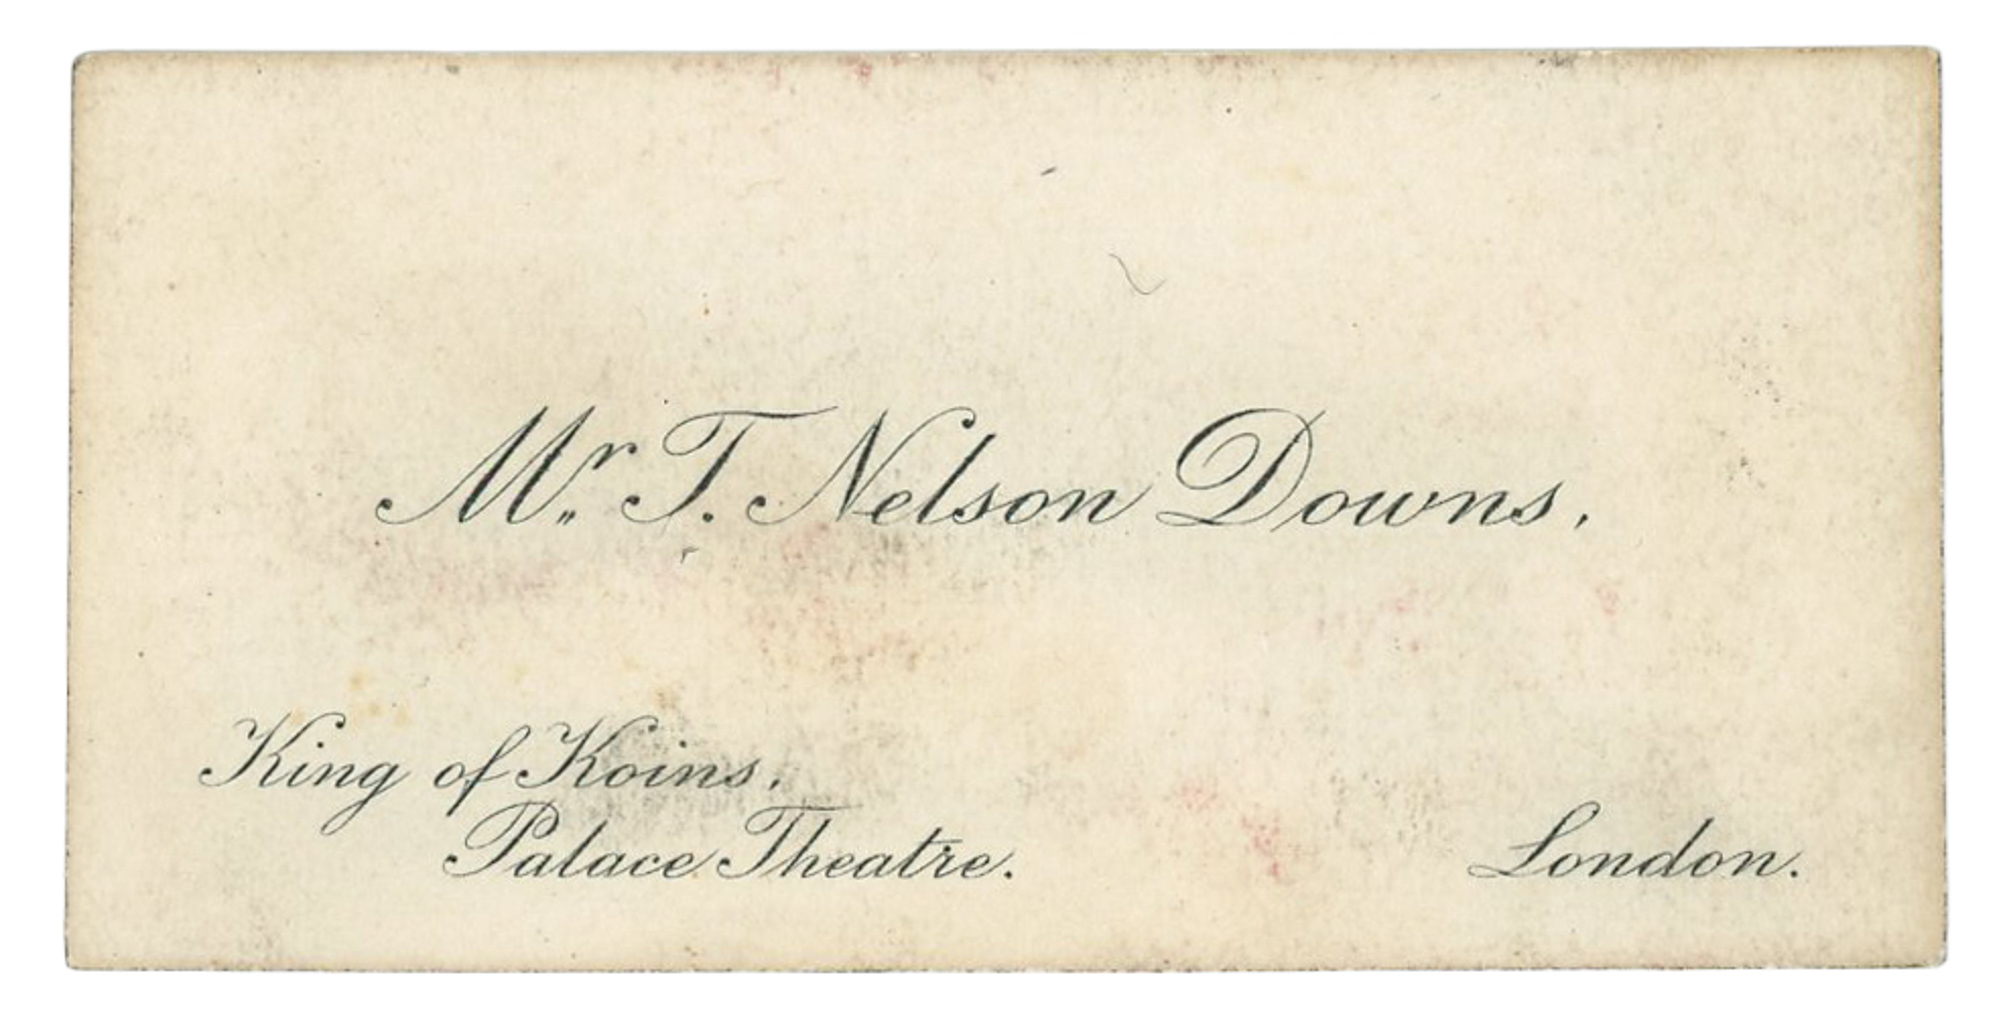 Mr. T. Nelson Downs,
King of Koins,
Palace Theatre.
London.